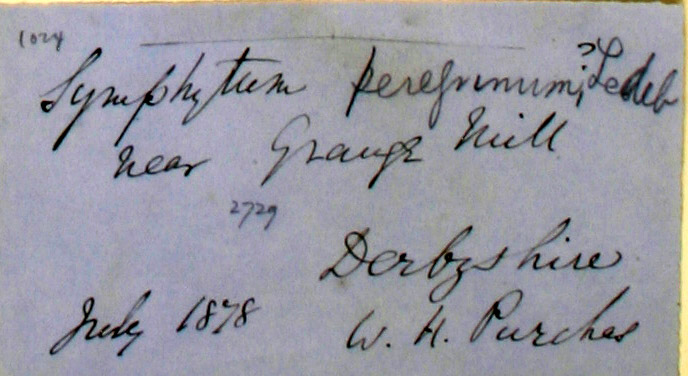 1024
Symphytum peregrinum, ? Ledeb
near Grange Mill
2729
Derbyshire
July 1878 W. H. Purchas